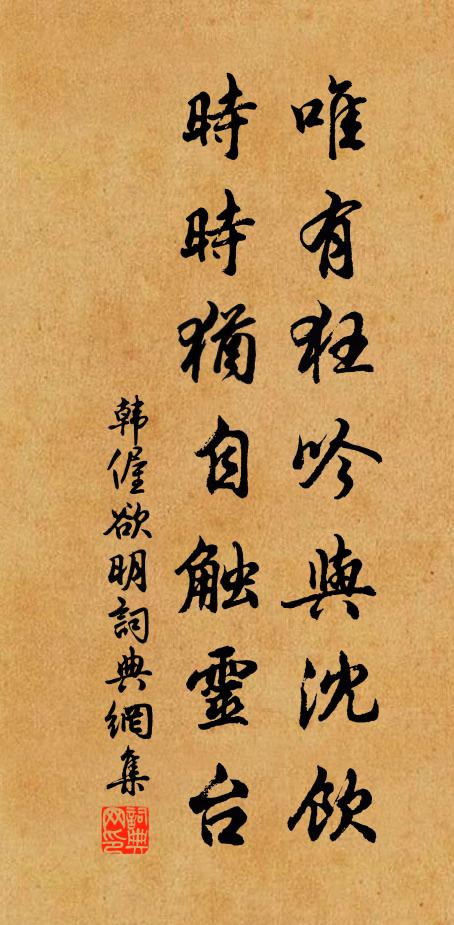 唯有狂吟與沈飲
時時猶自触靈台
韩偓欲明詞典網集
詞典网印